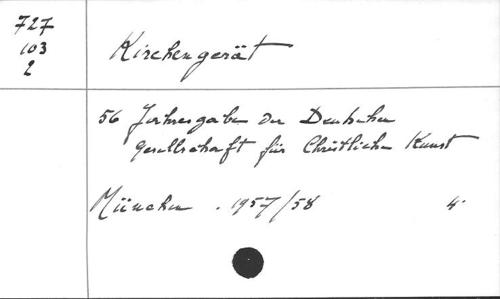 727
103
2
Kirchengerät
56 Jahresgaben der Deutschen
Gesellschaft für Christliche Kunst
München . 1957/58 4°